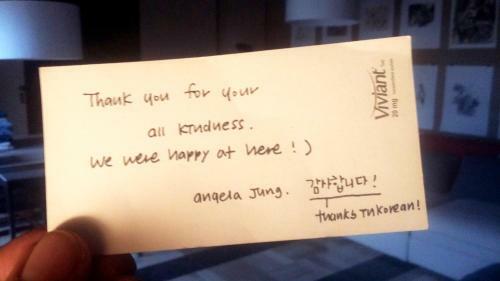 Thank you for your
all kindness.
We were happy at here ! )
angela Jung. 감사합니다!
thanks in korean!
Viviant
20 mg